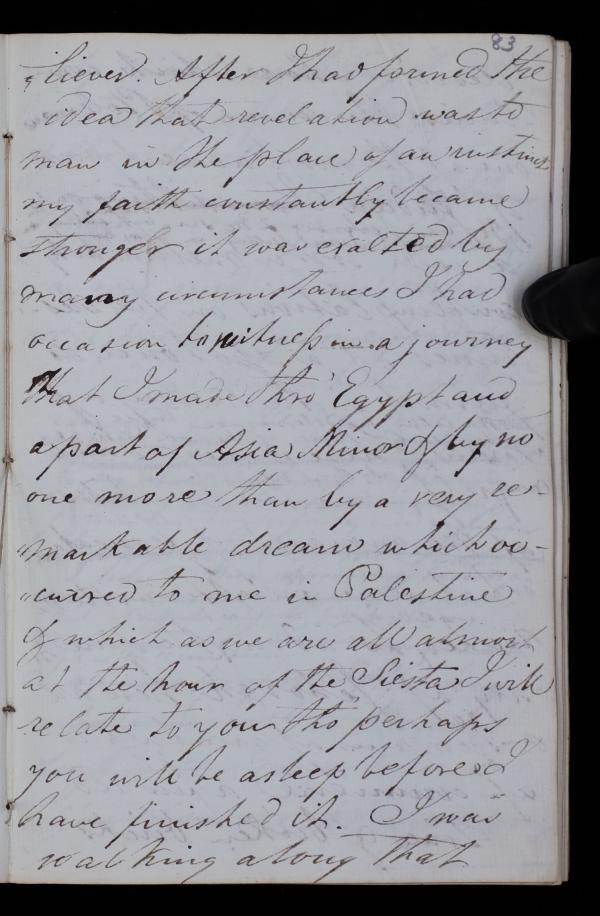 83
"liever. After I had formed the
idea that revelation was to
man in the place of an instinct
my faith constantly became
stronger it was exalted by
many circumstances I had
occasion to witness in a journey
that I made thro' Egypt and
a part of Asia Minor & by no
one more than by a very re-
markable dream which oc-
"curred to me in Palestine
& which as we are all almost
at the hour of the Siesta I will
relate to you tho' perhaps
you will be asleep before I
have finished it. I was
walking along that